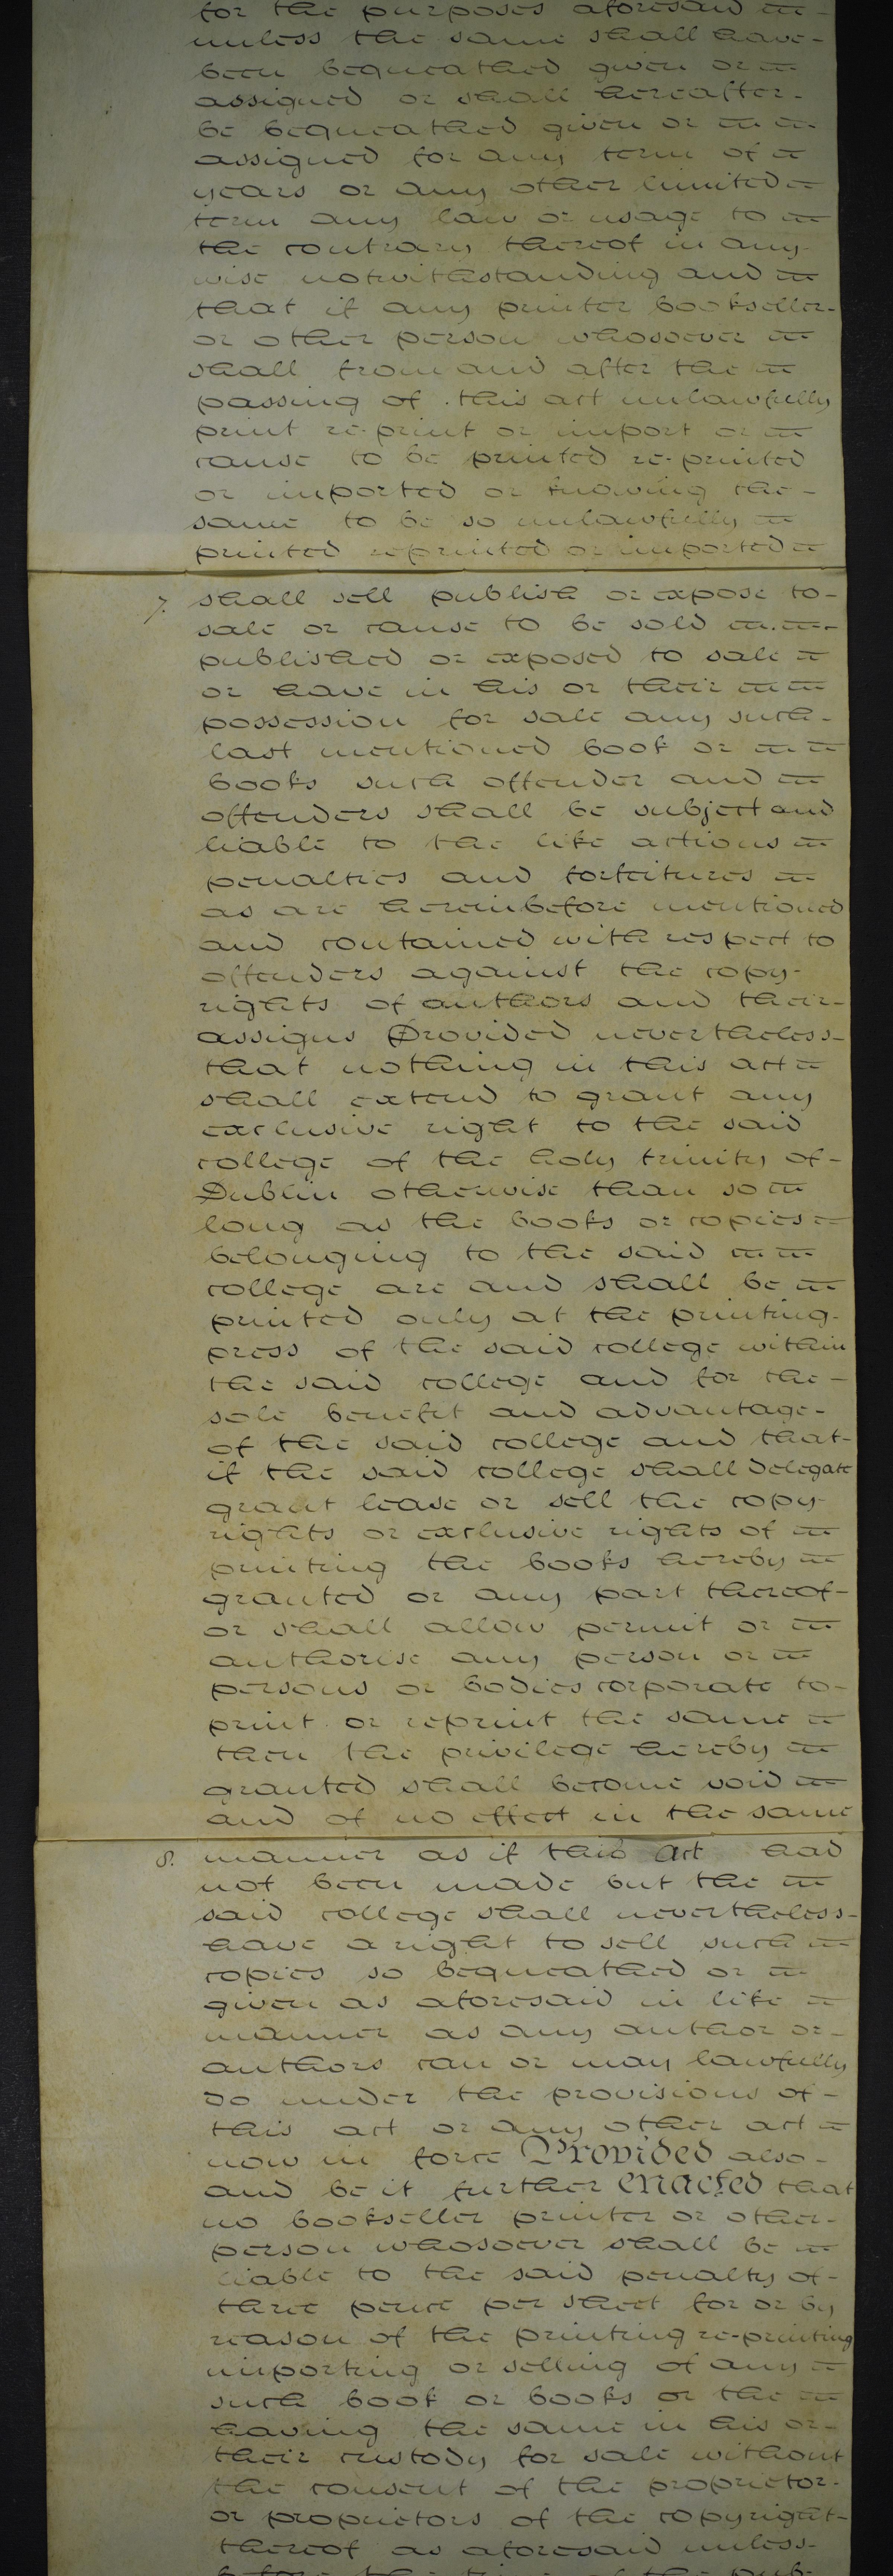 for the purposes aforesaid
unless the same shall have
been bequeathed given or
assigned or shall hereafter
be bequeathed given or
assigned for any term of
years or any other limited
term any law or usage to
the contrary thereof in any
wise notwithstanding and
that if any printer bookseller
or other person whosoever
shall from and after the
passing of this act unlawfully
print re-print or import or
cause to be printed re-printed
or imported or knowing the
same to be so unlawfully
printed reprinted or imported
7. shall sell publish or expose to
sale or cause to be sold
published or exposed to sale
or have in his or their
possession for sale any such
last mentioned book or
books such offender and
offenders shall be subject and
liable to the like actions
penalties and forfeitures
as are hereinbefore mentioned
and contained with respect to
offenders against the copy-
rights of authors and their
assigns Provided nevertheless
that nothing in this act
shall extend to grant any
exclusive right to the said
college of the holy trinity of
Dublin otherwise than so
long as the books or copies
belonging to the said
college are and shall be
printed only at the printing
press of the said college within
the said college and for the
sole benefit and advantage
of the said college and that
if the said college shall delegate
grant lease or sell the copy
rights or exclusive rights of
printing the books hereby
granted or any part thereof
or shall allow permit or
authorise any person or
persons or bodies corporate to
print or reprint the same
then the privilege hereby
granted shall become void
and of no effect in the same
8. manner as if this Act had
not been made but the
said college shall nevertheless
have a right to sell such
copies so bequeathed or
given as aforesaid in like
manner as any author or
authors can or may lawfully
do under the provisions of
this act or any other act
now in force Provided also
and be it further enacted that
no bookseller printer or other
person whosoever shall be
liable to the said penalty of
three pence per sheet for or by
reason of the printing re-printing
importing or selling of any
such book or books or the
having the same in his or
their custody for sale without
the consent of the proprietor
or proprietors of the copyright
thereof as aforesaid unless